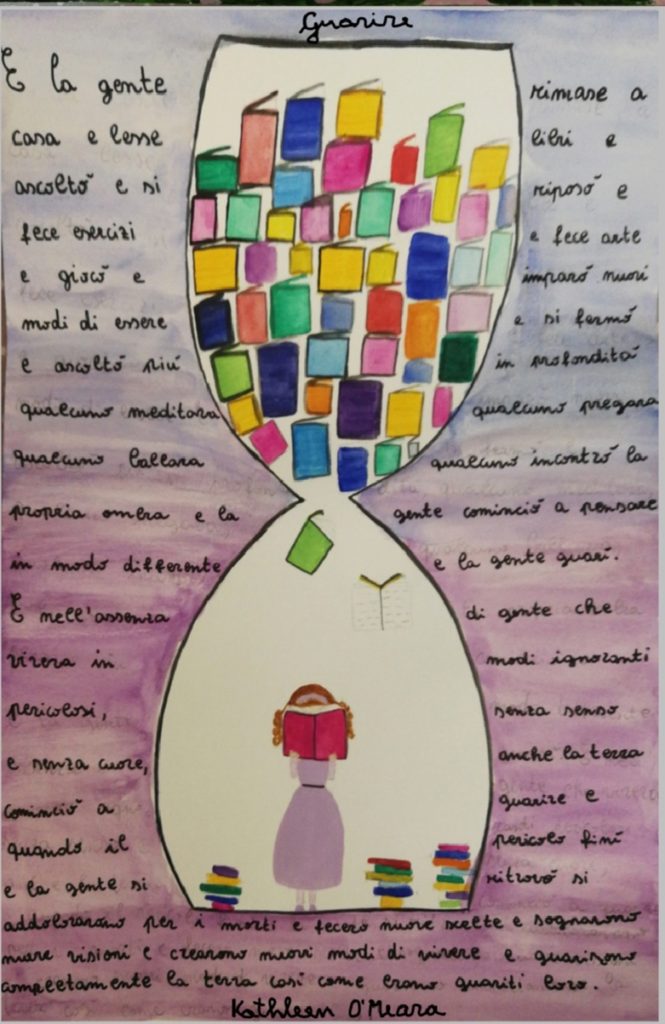 Guarire
E la gente rimase a
casa e lesse libri e
ascoltò e si riposò e
fece esercizi e fece arte
e giocò e imparò nuovi
modi di essere e si fermò
e ascoltò più in profondità
qualcuno meditava qualcuno pregava
qualcuno ballava qualcuno incontrò la
propria ombra e la gente cominciò a pensare
in modo differente e la gente guarì.
E nell'assenza di gente che
viveva in modi ignoranti
pericolosi, senza senso
e senza cuore, anche la terra
cominciò a guarire e
quando il pericolo finì
e la gente si ritrovò si
addolorarono per i morti e fecero nuove scelte e sognarono
nuove visioni e crearono nuovi modi di vivere e guarirono
completamente la terra così come erano guariti loro.
Kathleen O'Meara